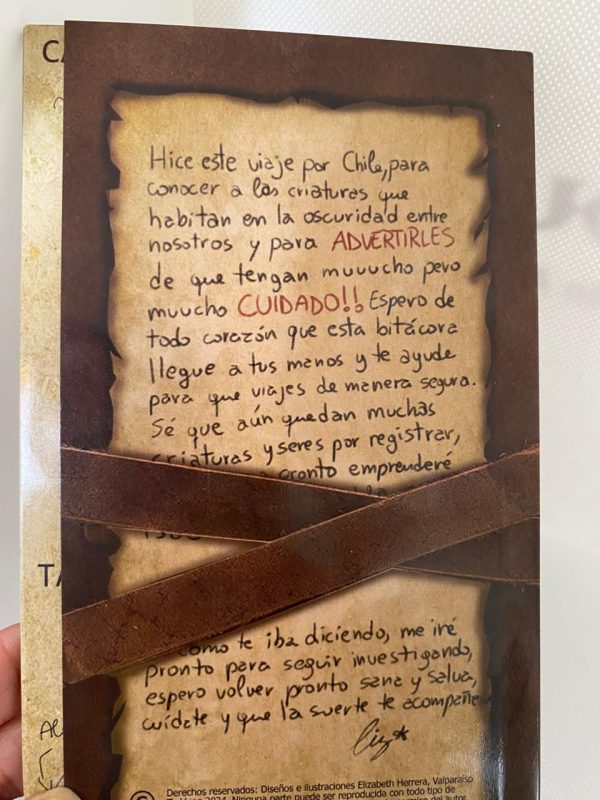 CA
Hice este viaje por Chile, para
conocer a las criaturas que
habitan en la oscuridad entre
nosotros y para ADVERTIRLES
de que tengan muuucho pero
muucho CUIDADO!! Espero de
todo corazón que esta bitácora
llegue a tus manos y te ayude
para que viajes de manera segura.
Sé que aún quedan muchas
criaturas y seres por registrar,
pronto emprenderé
TA
como te iba diciendo, me iré
pronto para seguir investigando,
espero volver pronto sana y salva,
cuídate y que la suerte te acompañe
Liz*
AL
© Derechos reservados: Diseños e ilustraciones Elizabeth Herrera, Valparaíso
2024. Ninguna parte puede ser reproducida con todo tipo de